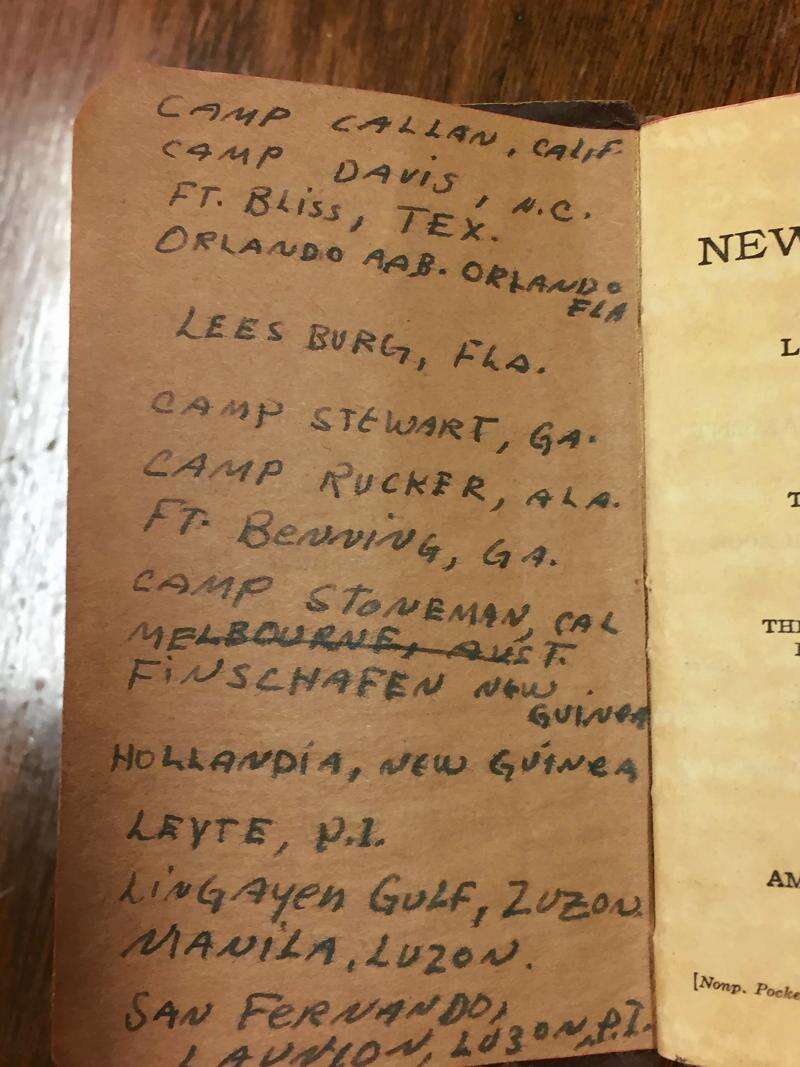 CAMP CALLAN, CALIF.
CAMP DAVIS, N.C.
FT. BLISS, TEX.
ORLANDO AAB. ORLANDO
FLA
LEES BURG, FLA.
CAMP STEWART, GA.
CAMP RUCKER, ALA.
FT. BENNING, GA.
CAMP STONEMAN, CAL
MELBOURNE, AUST.
FINSCHAFEN NEW
GUINEA
HOLLANDIA, NEW GUINEA
LEYTE, P.I.
LINGAYEN GULF, ZUZON
MANILA, LUZON.
SAN FERNANDO,
LAUNION, LUZON, P.I.
NEW
L
T
THE
AM
[Nonp. Pocke